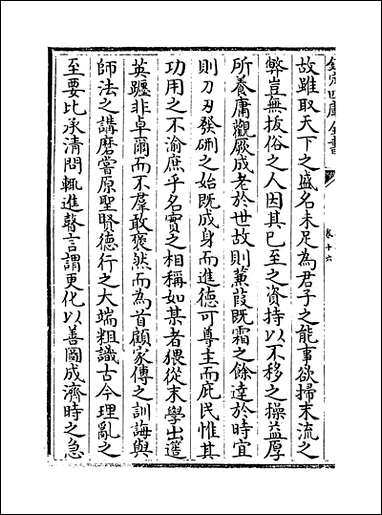 欽定四庫全書
卷十六
故雖取天下之盛名未足為君子之能事欲掃末流之
弊豈無拔俗之人因其已至之資持以不移之操益厚
所養庸觀厥成老於世故則蒹葭既霜之餘達於時宜
則刀刃發硎之始既成身而進德可尊主而庇民惟其
功用之不渝庶乎名實之相稱如某者猥從末學出遊
英躔非卓爾而不羣敢褎然而為首顧家傳之訓誨與
師法之講磨嘗原聖賢德行之大端粗識古今理亂之
至要比承清問輒進瞽言謂更化以善圖成濟時之急